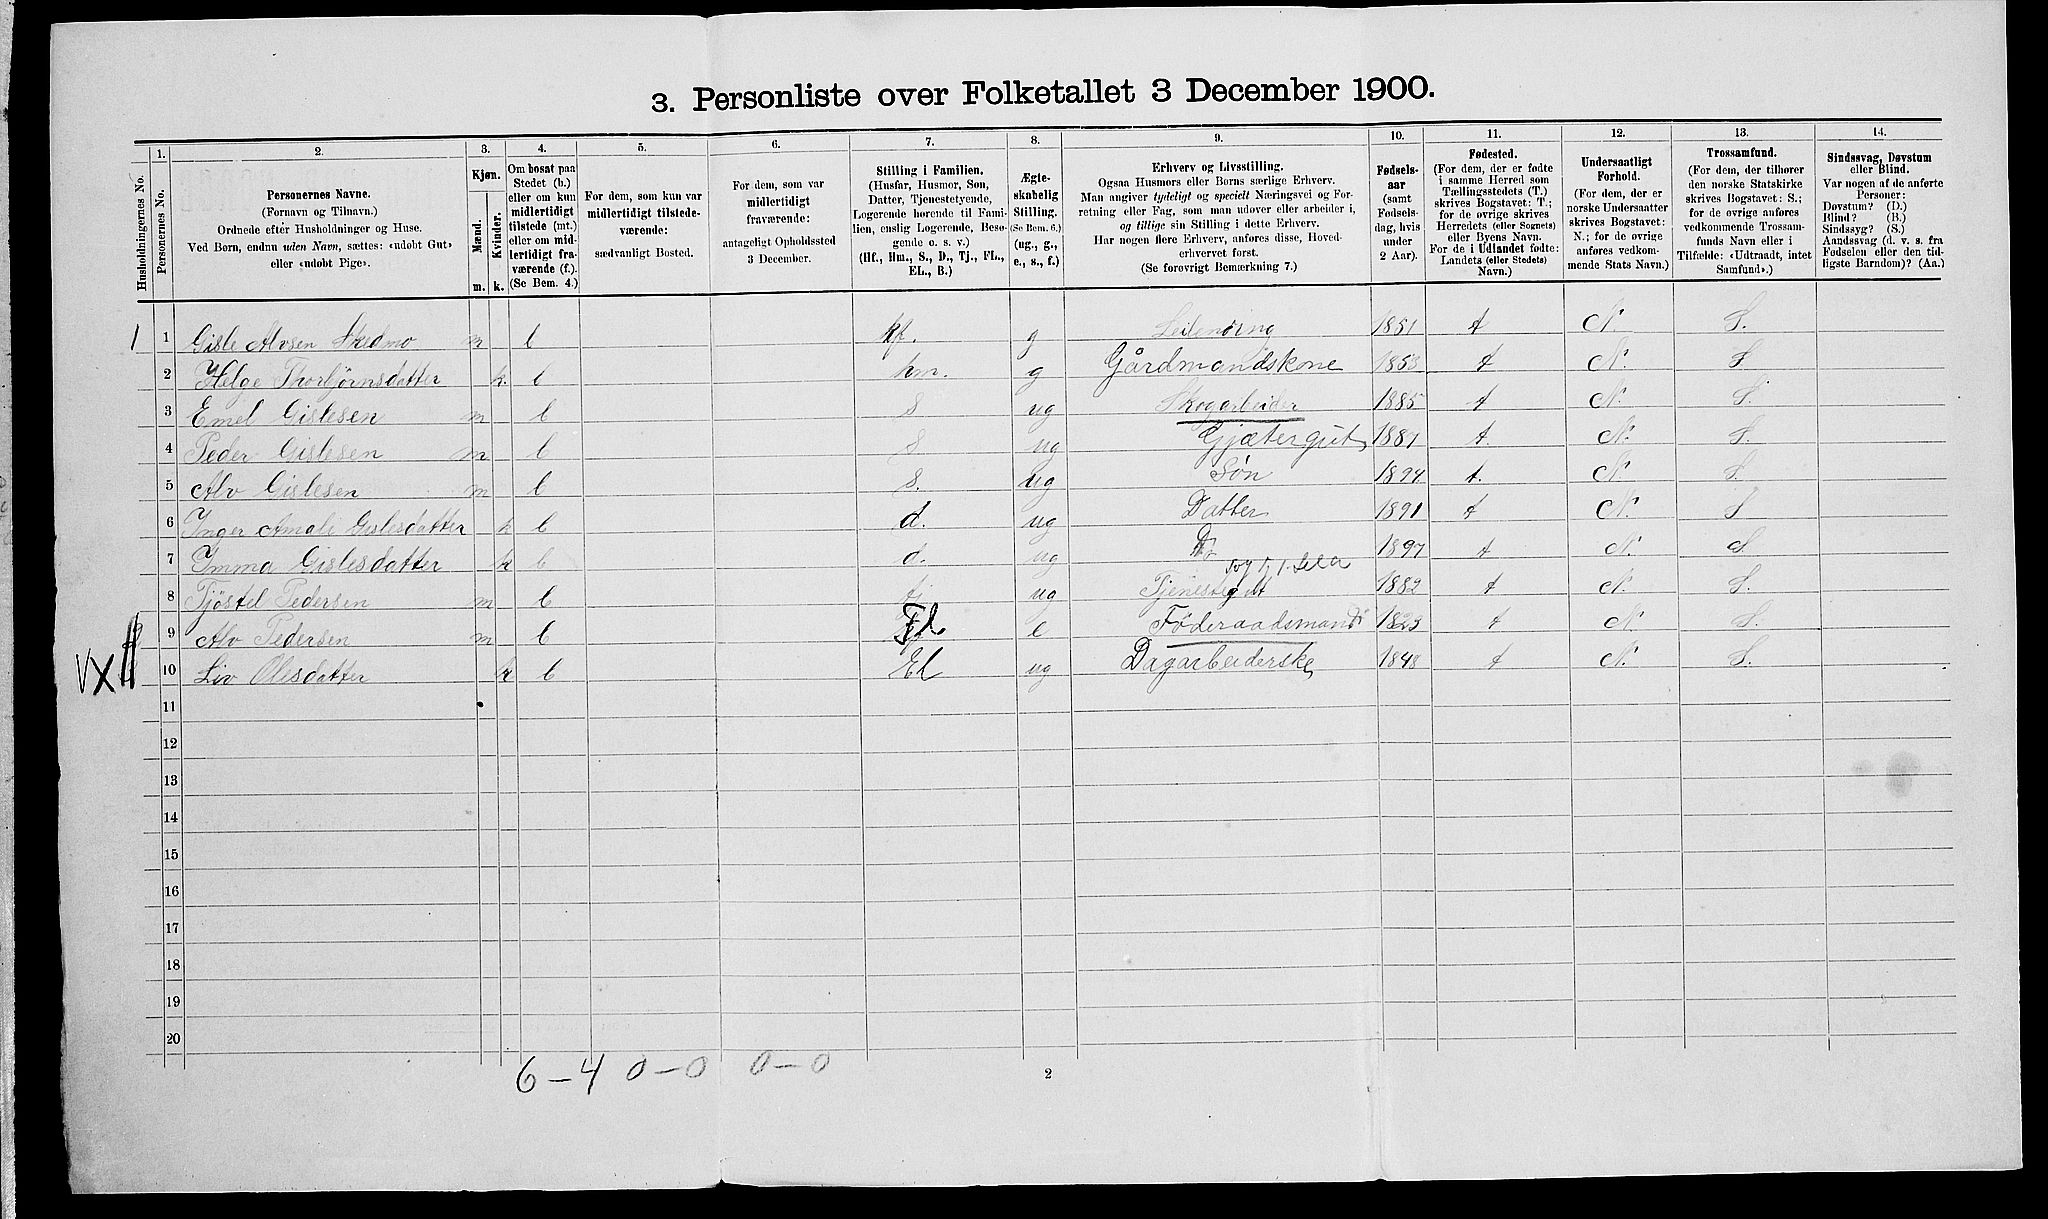 3. Personliste over Folketallet 3 December 1900.
1. 2. 3. 4. 5. 6. 7. 8. 9. 10. 11. 12. 13. 14.
Husholdningernes No.
Personernes No.
Personernes Navne.
(Fornavn og Tilnavn.)
Ordnede efter Husholdninger og Huse.
Ved Børn, endnu uden Navn, sættes: «udøbt Gut»
eller «udøbt Pige».
Kjøn.
Mænd.
Kvinder.
m. k.
Om bosat paa
Stedet (b.)
eller om kun
midlertidigt
tilstede (mt.)
eller om mid-
lertidigt fra-
værende (f.).
(Se Bem. 4.)
For dem, som kun var
midlertidigt tilstede-
værende:
sædvanligt Bosted.
For dem, som var
midlertidigt
fraværende:
antageligt Opholdssted
3 December.
Stilling i Familien.
(Husfar, Husmor, Søn,
Datter, Tjenestetyende,
Logerende hørende til Fami-
lien, enslig Logerende, Besø-
gende o. s. v.)
(Hf., Hm., S., D., Tj., FL.,
EL., B.)
Ægte-
skabelig
Stilling.
(Se Bem. 6.)
(ug., g.,
e., s., f.)
Erhverv og Livsstilling.
Ogsaa Husmors eller Børns særlige Erhverv.
Man angiver tydeligt og specielt Næringsvei og For-
retning eller Fag, som man udøver eller arbeider i,
og tillige sin Stilling i dette Erhverv.
Har nogen flere Erhverv, anføres disse, Hoved-
erhvervet først.
(Se forøvrigt Bemærkning 7.)
Fødsels-
aar
(samt
Fødsels-
dag, hvis
under
2 Aar).
Fødested.
(For dem, der er fødte
i samme Herred som
Tællingsstedets (T.)
skrives Bogstavet: T.;
for de øvrige skrives
Herredets (eller Sognets)
eller Byens Navn.
For de i Udlandet fødte:
Landets (eller Stedets)
Navn.)
Undersaatligt
Forhold.
(For dem, der er
norske Undersaatter
skrives Bogstavet:
N.; for de øvrige
anføres vedkom-
mende Stats Navn.)
Trossamfund.
(For dem, der tilhører
den norske Statskirke
skrives Bogstavet: S.;
for de øvrige anføres
vedkommende Trossam-
funds Navn eller i
Tilfælde: «Udtraadt, intet
Samfund».)
Sindssvag, Døvstum
eller Blind.
Var nogen af de anførte
Personer:
Døvstum? (D.)
Blind? (B.)
Sindssyg? (S.)
Aandssvag (d. v. s. fra
Fødselen eller den tid-
ligste Barndom)? (Aa.)
1 1 Gisle Alvsen Skedmo m b hf. g Leilending 1851 t N. S.
2 Helge Thorbjörnsdatter k. b hm. g Gårdmandskone 1853 t N. S
3 Emel Gislesen m b s ug Skogarbeider 1885 t N. S.
4 Peder Gislesen m b s ug Gjætergut 1887 t. N. S.
5 Alv Gislesen m b s. ug Søn 1894 t. N S.
6 Inger Amali Gislesdatter k b d. ug Datter 1891 t N. S
7 Imma Gislesdatter k b d. ug 1897 t N. S.
8 Tjöstel Pedersen m b tj ug Tjenestegut 1882 t N. S.
9 Alv Pedersen m b Fl e Føderaadsmand 1823 t N S.
10 Liv Olesdatter k b El ug Dagarbeiderske 1848 t N. S.
11
12
13
14
15
16
17
18
19
20
6 – 4 0 – 0 0 – 0
2